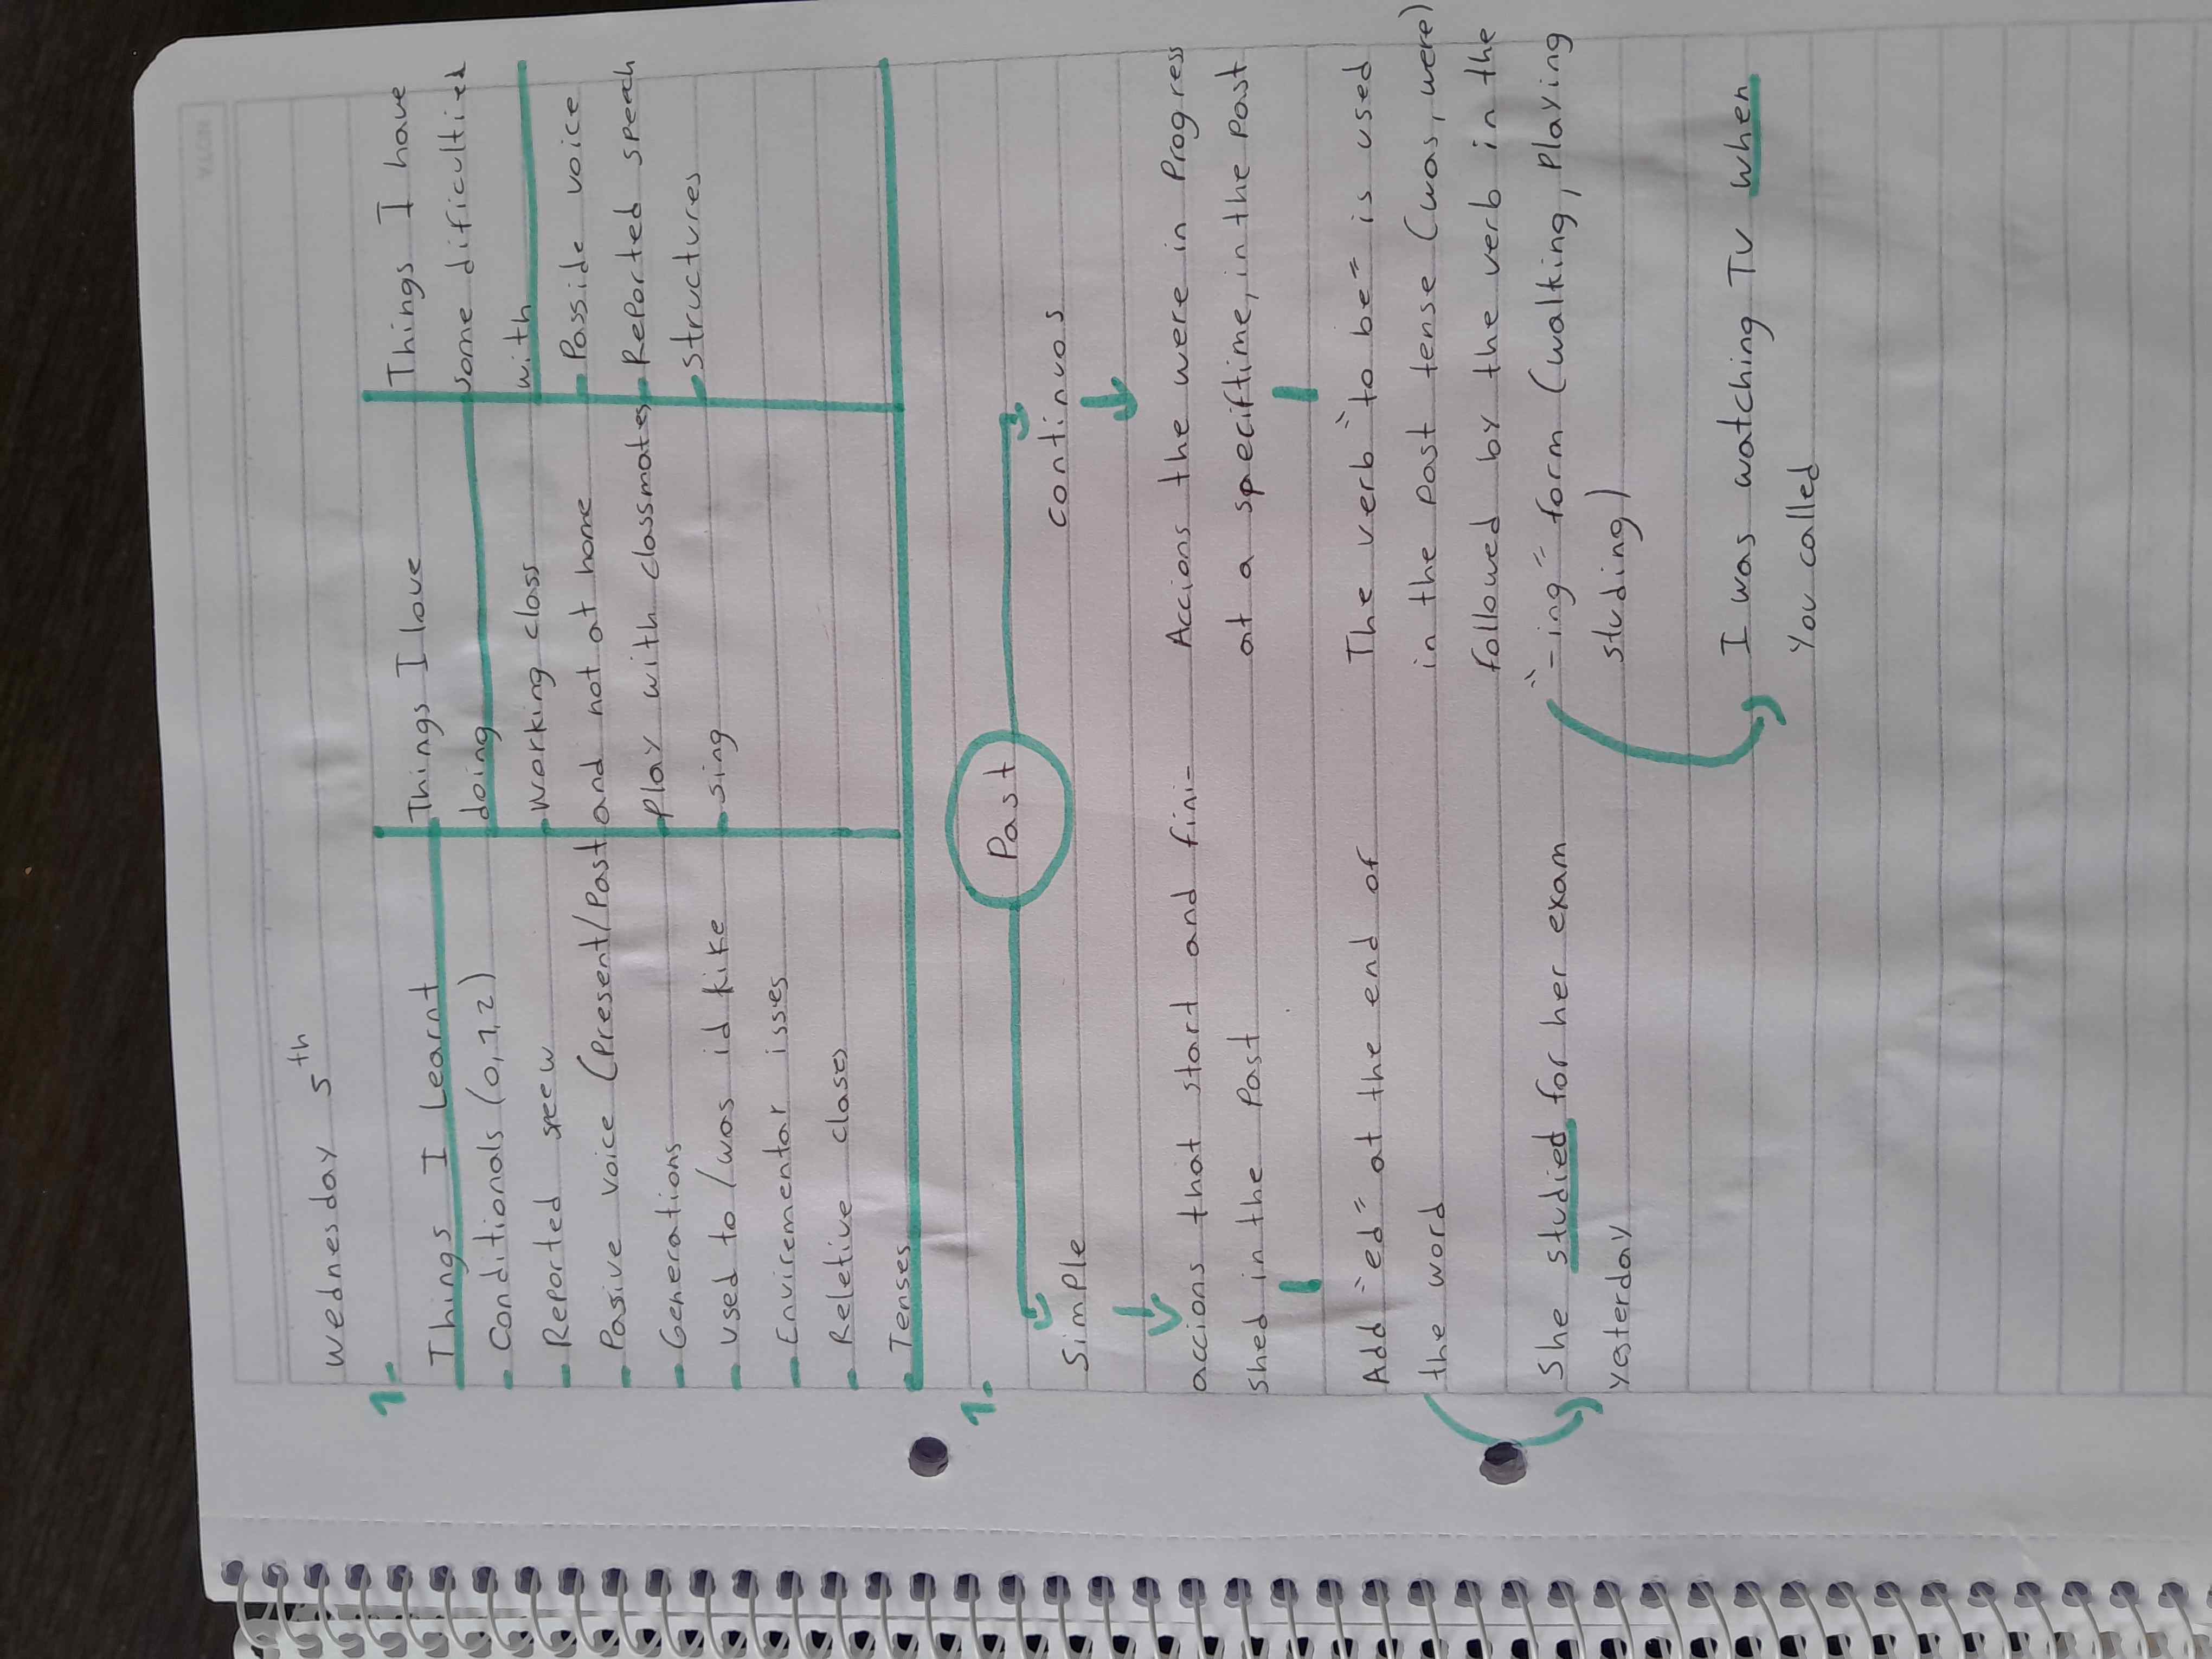 Wednesday 5th
1.
Things I Learnt
- Conditionals (0,1,2)
- Reported speew
- Pasive voice (Present/Past
- Generations
- Used to / was
- Enviremental isses
- Reletive clases
- Tenses
Things I love
doing
- Working class
and not at home
- Play with classmates
- sing
Things I have
some dificultied
with
- Passide voice
- Reported speech
- structures
1.
Past
Simple
accions that start and fini-
shed in the Past
Add "ed" at the end of
the word
She studied for her exam
yesterday
continuos
Accions the were in Progress
at a specif time, in the Past
The verb "to be" is used
in the Past tense (was, were)
followed by the verb in the
"-ing" form (walking, Playing
studing)
I was watching TV when
You called